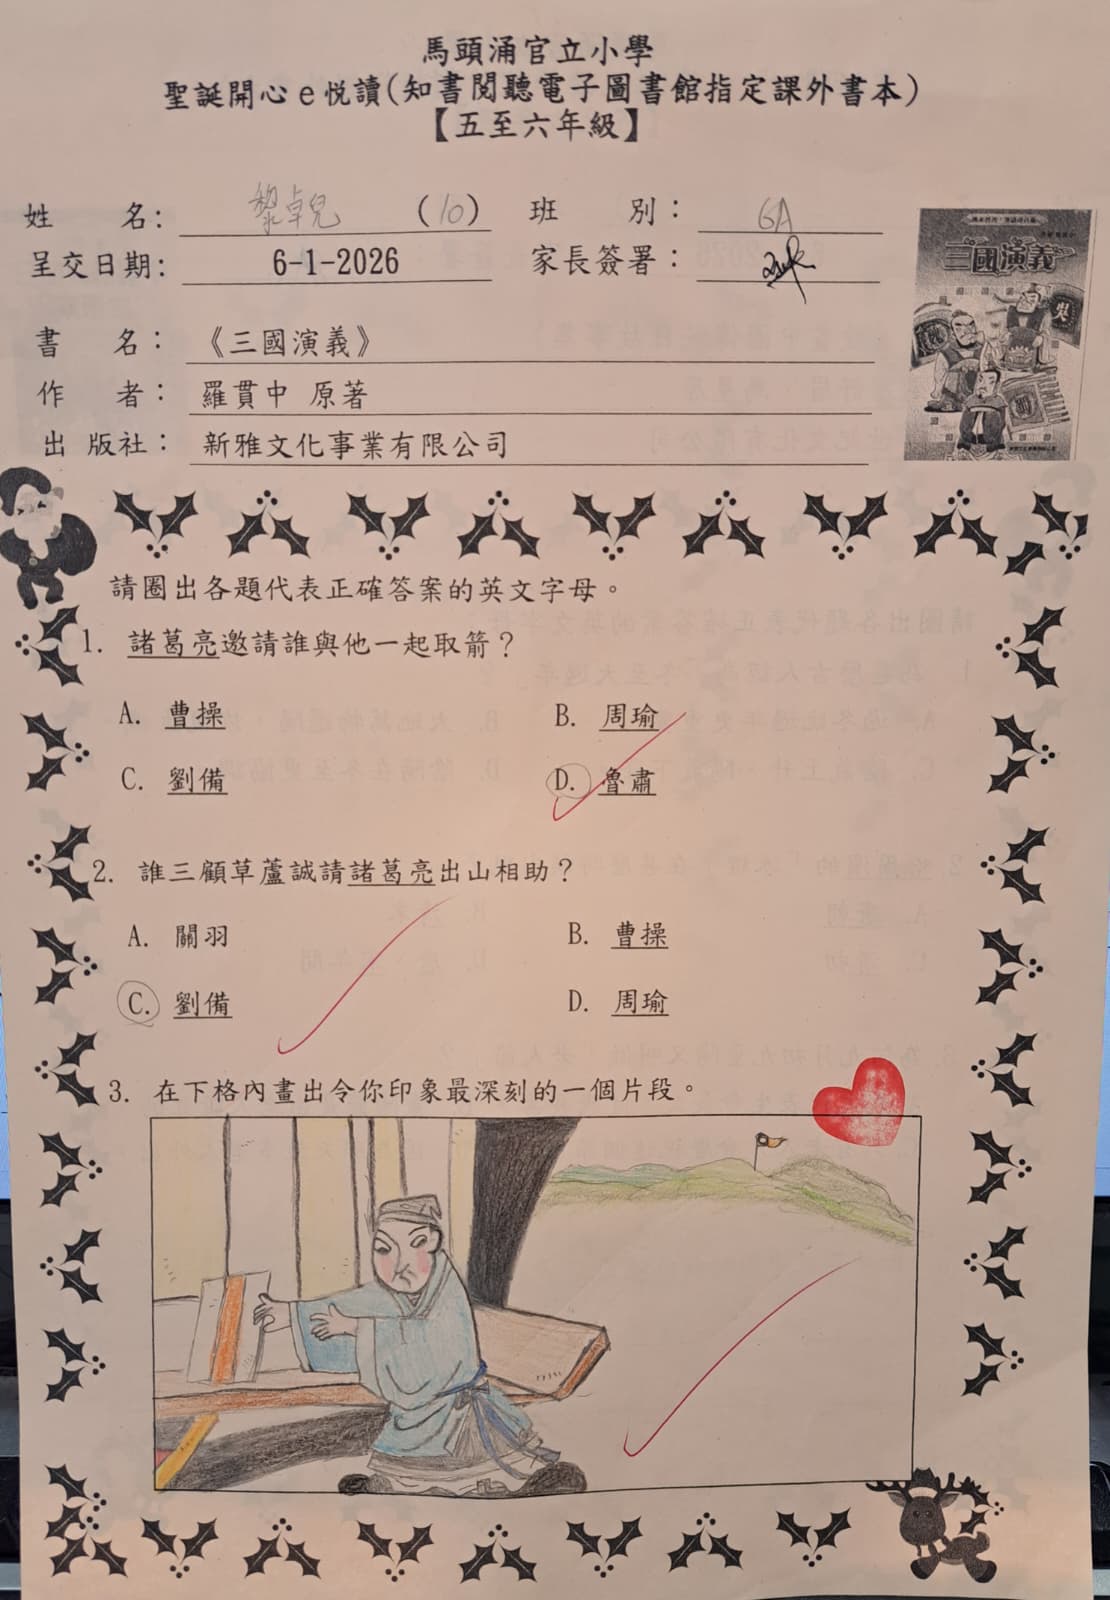 馬頭涌官立小學
聖誕開心e悅讀(知書閱聽電子圖書館指定課外書本)
【五至六年級】
姓 名: 黎卓兒 (10) 班 別: 6A
呈交日期: 6-1-2026 家長簽署:
三國演義
書 名: 《三國演義》
作 者: 羅貫中 原著
出 版社: 新雅文化事業有限公司
請圈出各題代表正確答案的英文字母。
1. 諸葛亮邀請誰與他一起取箭?
A. 曹操 B. 周瑜
C. 劉備 D. 魯肅
2. 誰三顧草蘆誠請諸葛亮出山相助?
A. 關羽 B. 曹操
C. 劉備 D. 周瑜
3. 在下格內畫出令你印象最深刻的一個片段。